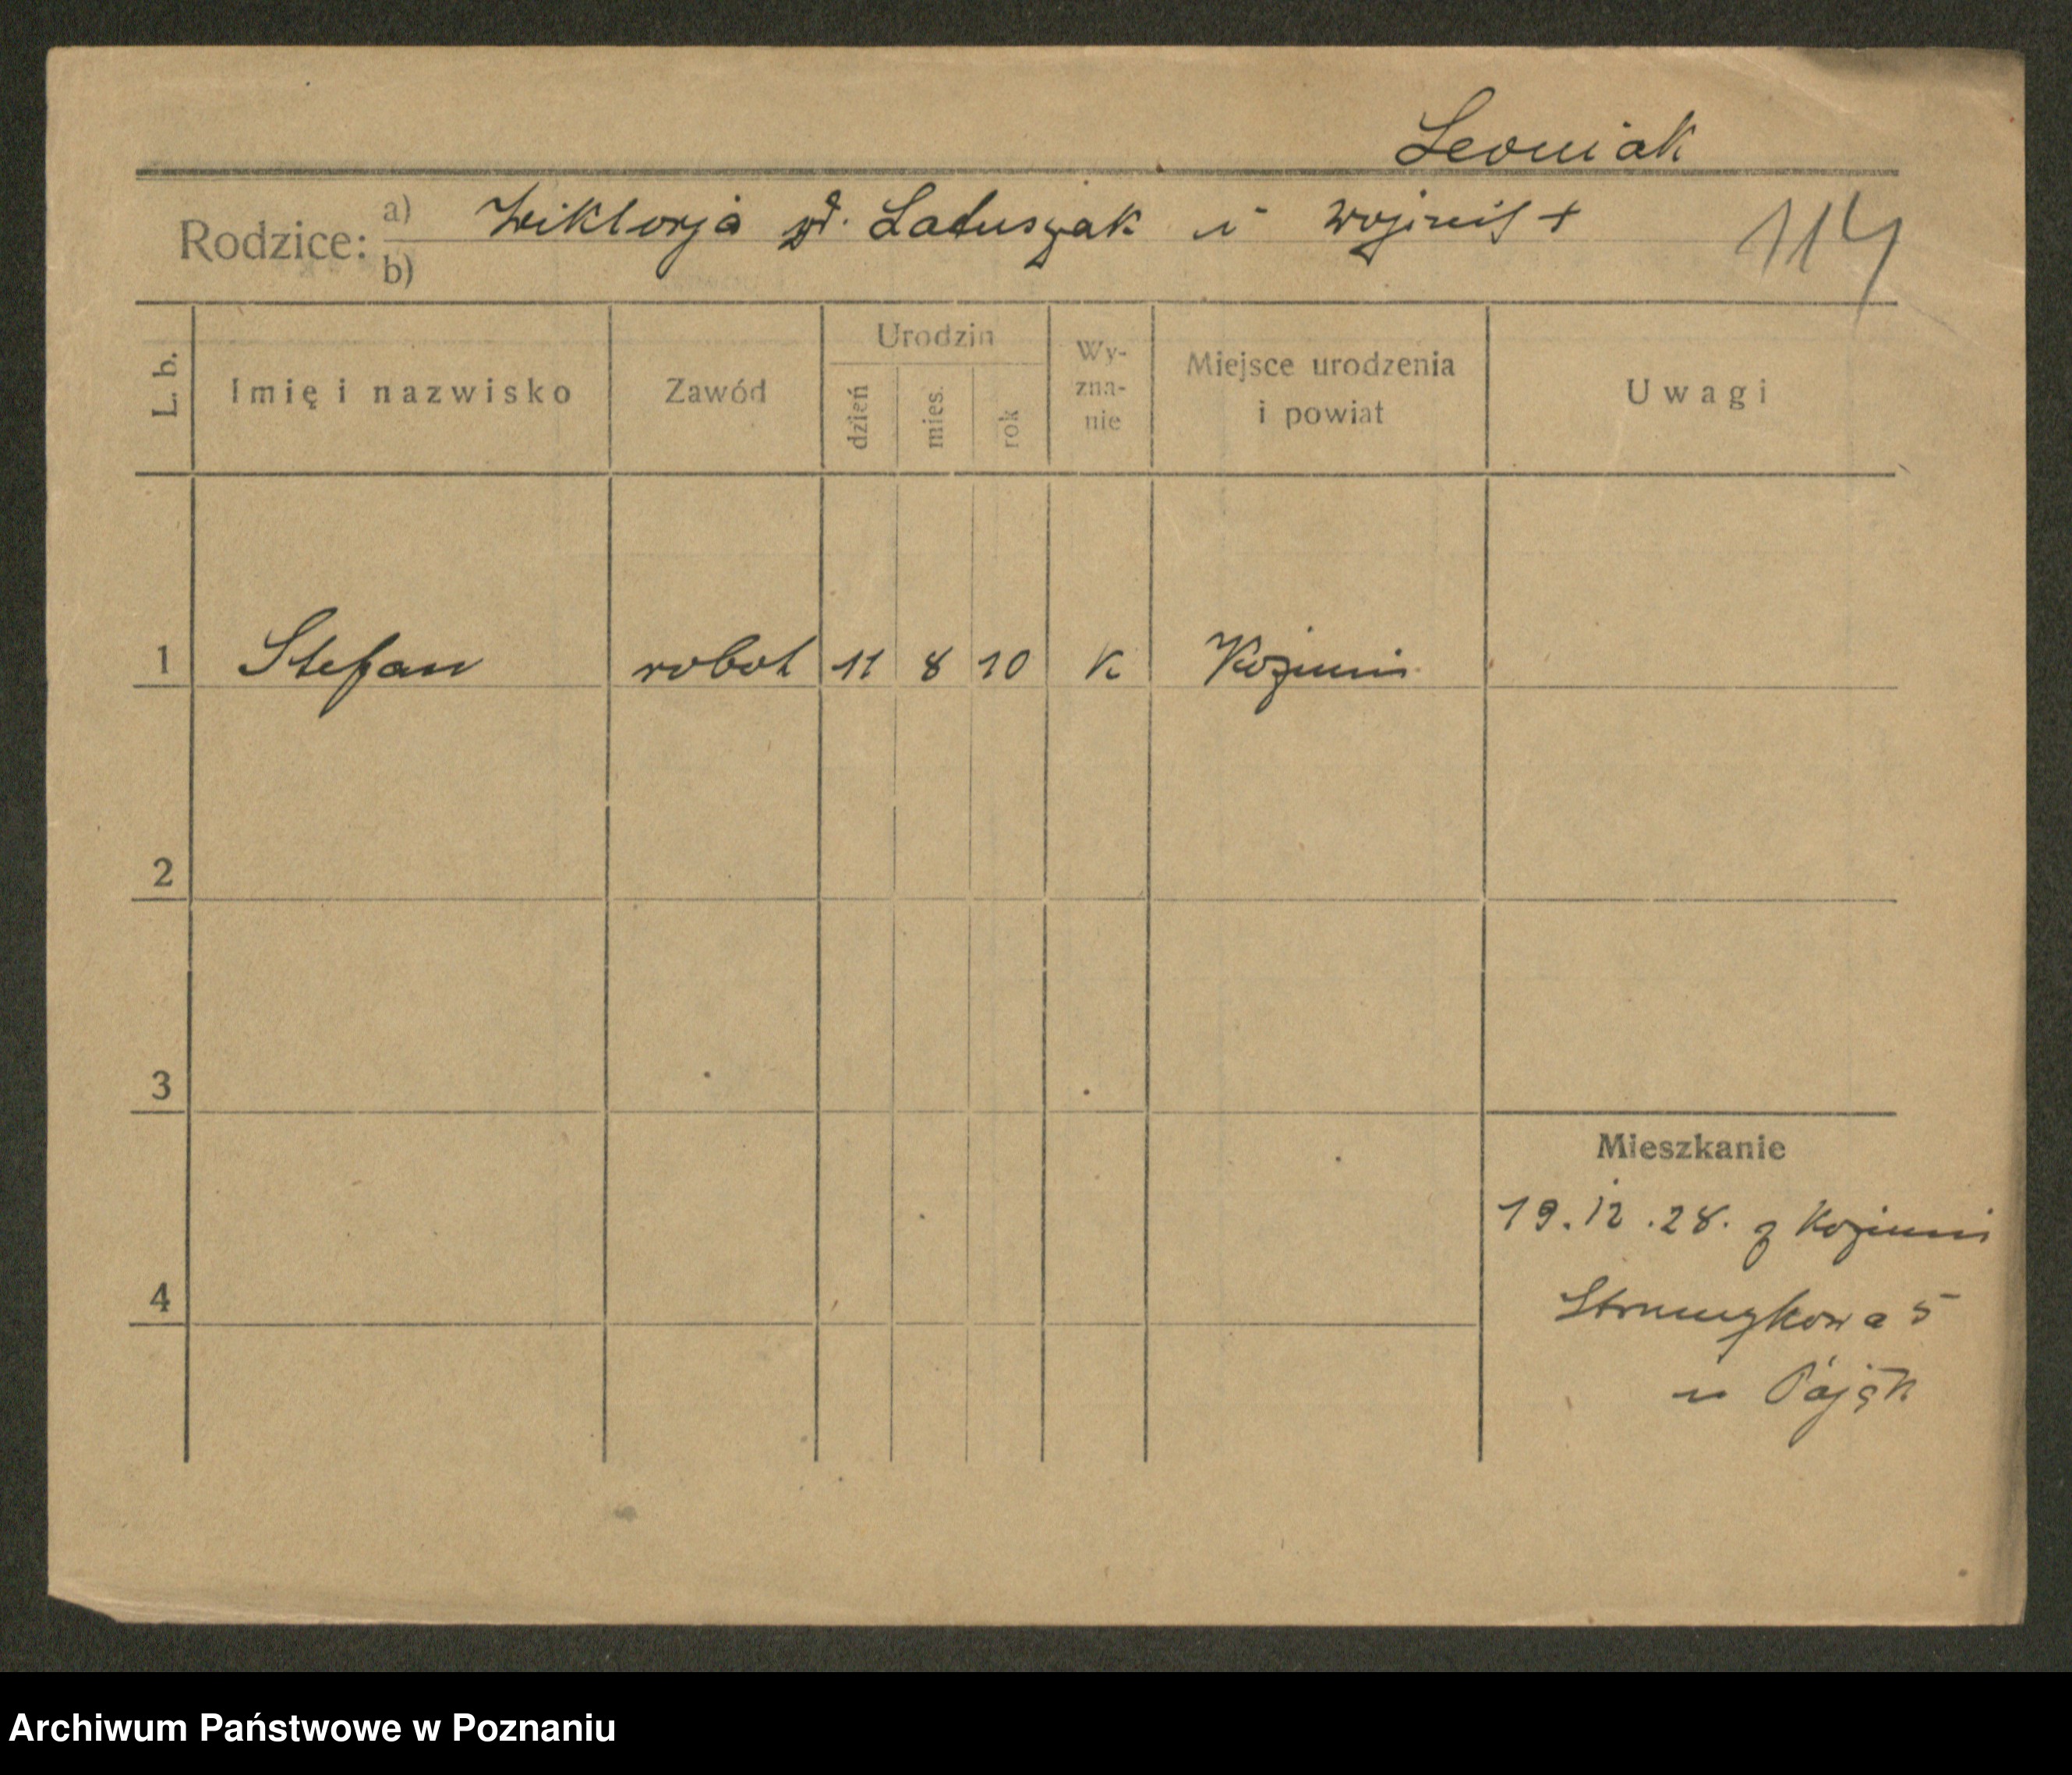 Leoniak
Rodzice: a) Wiktorja Łatuszak i +
b)
114
L. b. Imię i nazwisko Zawód Urodzin dzień mies. rok Wy-zna-nie Miejsce urodzenia i powiat Uwagi
1 Stefan robot 11 8 10 k Koźmin
2
3
4
Mieszkanie
19.12.28. z Koźmin
Strumykowa 5
u Pająk
Archiwum Państwowe w Poznaniu